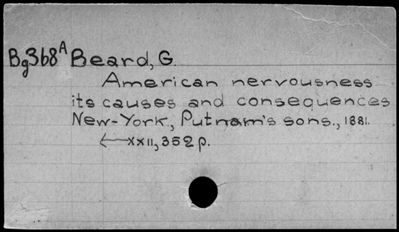 Bg368A Beard, G.
American nervousness
its causes and consequences
New-York, Putnam's sons., 1881.
xxii, 352 p.